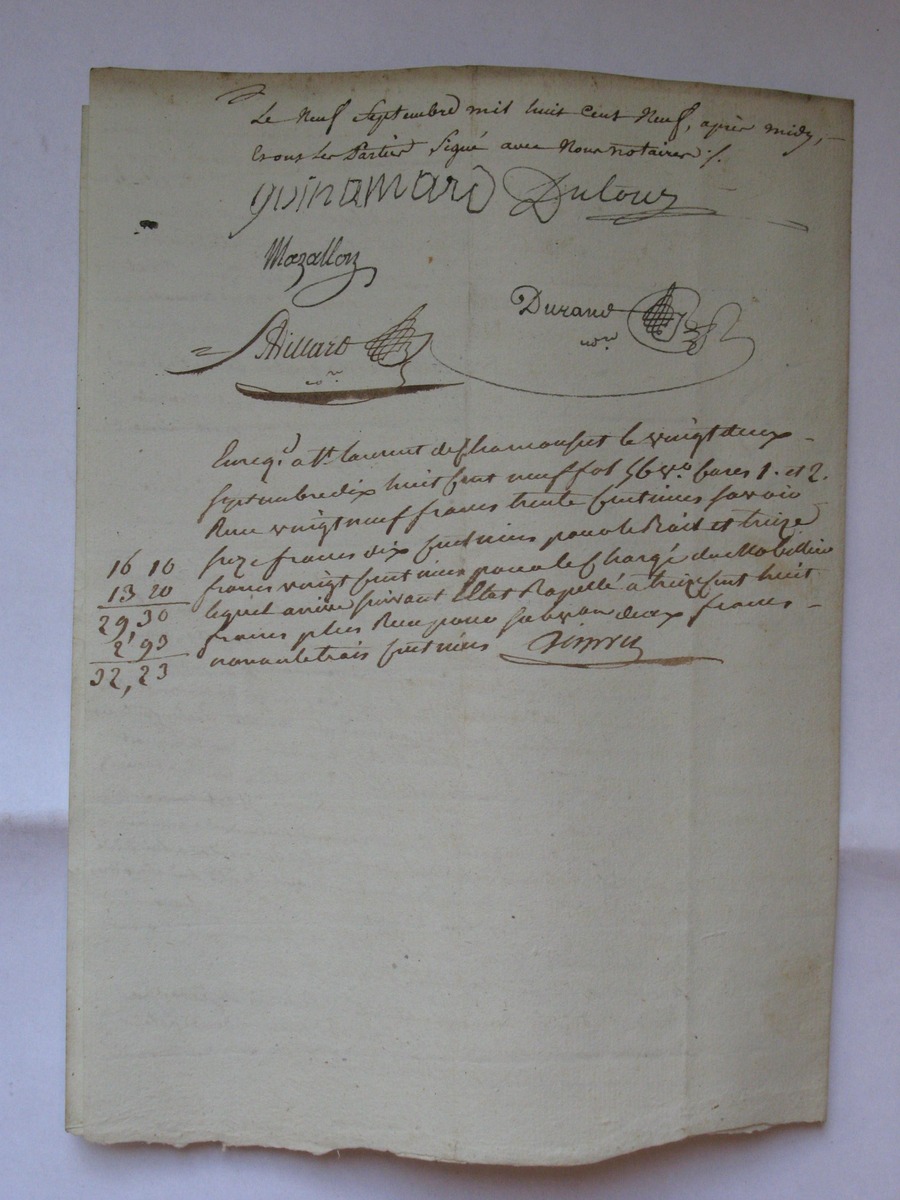 Le Neuf Septembre mil huit Cent Neuf, après midy,
Et ont les Parties Signé avec Nous notaires ./.
guinamard Dulour
Mazallon
Durand
nore
hillard
nore
Enregé a St laurent de Chamousset le vingt deux
Septembre dix huit Cent neuf fol 56 vo Cases 1. et 2.
Recu vingt neuf francs trente Centimes Savoir
16 10 Seize francs dix Centimes pour le Bail et treize
13 20 francs vingt Centimes pour le Chargé du Mobilier
29,30 lequel arrive suivant l'Etat Rapellé a treize Cent huit
2,93 francs plus Recu pour Subvon deux francs
32,23 nonante trois Centimes